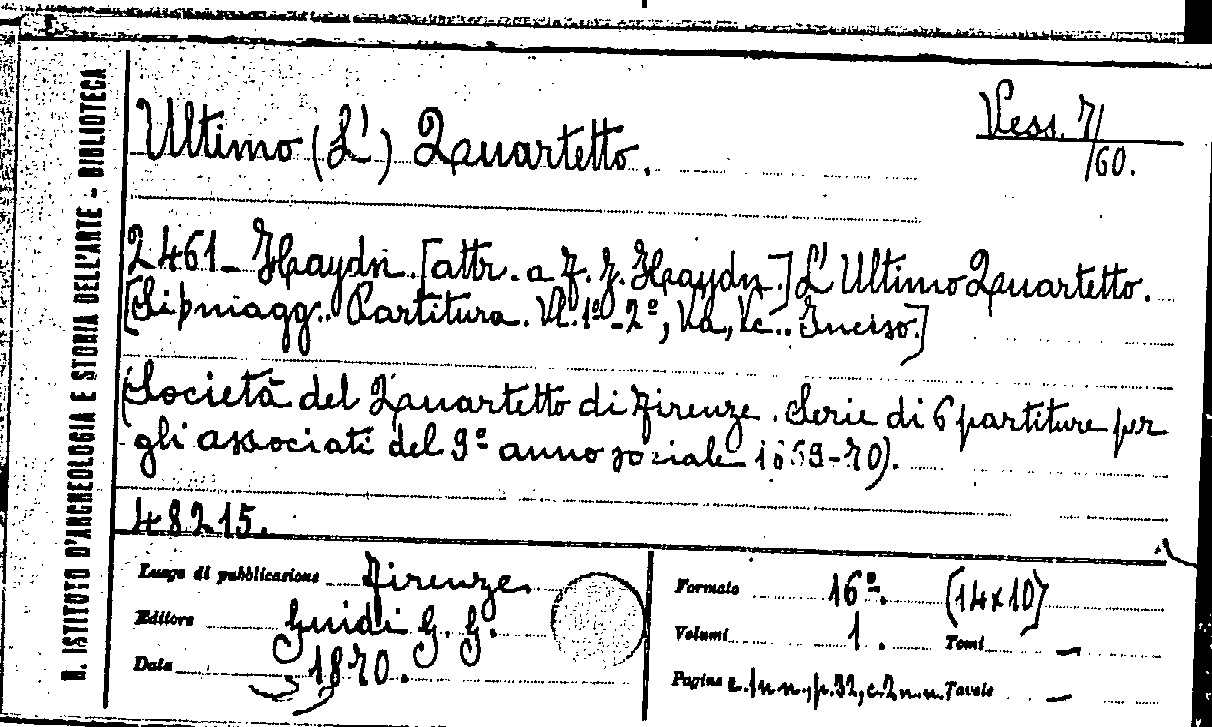 R. ISTITUTO D'ARCHEOLOGIA E STORIA DELL'ARTE - BIBLIOTECA
Ultimo (L') Quartetto.
Vess. 7/
/60.
2461 - Haydn. [attr. a F. J. Haydn.] L'Ultimo Quartetto.
Partitura. Vl. 1º-2º, Va, Vc.. Inciso.]
(Società del Quartetto di Firenze. Serie di 6 partiture per
gli associati del 9º anno sociale 1869-70).
48215.
Luogo di pubblicazione Firenze.
Editore Guidi G. G.
Data 1870.
Formato 16º. (14x10)
Volumi 1. Tomi —
Pagine p. 32, c. 2 n. n. Tavole —